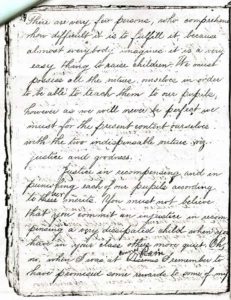 There are very few persons, who comprehend
how difficult it is to fulfill it, because
almost everybody imagines it is a very
easy thing to raise children. We must
possess all the virtues, ourselves in order
to be able to teach them to our pupils,
however as we will never be perfect we
must for the present content ourselves
with the two indispensable virtues viz
justice and goodness.
Justice in recompensing and in
punishing each of our pupils according
to their merits. You must not believe
that you commit an injustice in recom
pensing a very dissipated child when you
have in your class others more quiet. Oh
no, when I was at I remember to
have promised some rewards to some of my